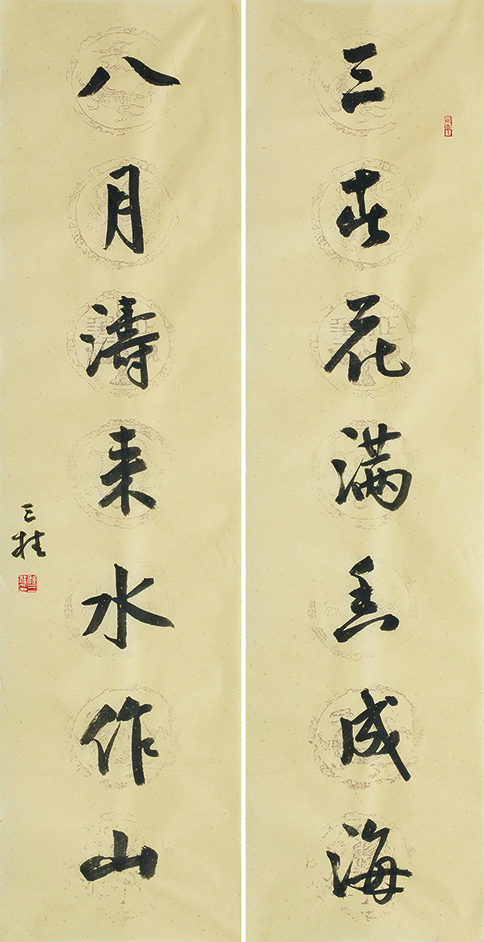 三春花满香成海
八月濤来水作山
三桂